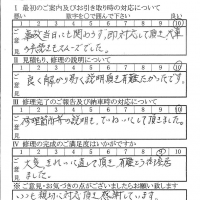 I 最初のご案内及びお引き取り時の対応について
悪い 数字を○で囲んで下さい 良い
1 2 3 4 5 6 7 8 9 10
故 当日にも関わらず、的 対応して頂き
手続きもスムーズでした。
II 見積もり、修理の説明について
1 2 3 4 5 6 7 8 9 10
良く解かり易く説明頂き有難たかったです。
III 修理完了のご報告及び納車時の対応について
1 2 3 4 5 6 7 8 9 10
修理箇所等の説明も、ていねいにして頂きました。
IIII 修理の完成のご満足度はいかがですか
1 2 3 4 5 6 7 8 9 10
大変きれいに直して頂き、有難う
ました
※ご意見・お気づきの点がございましたらお願い致します
いつも親切に対応頂き感謝しています。